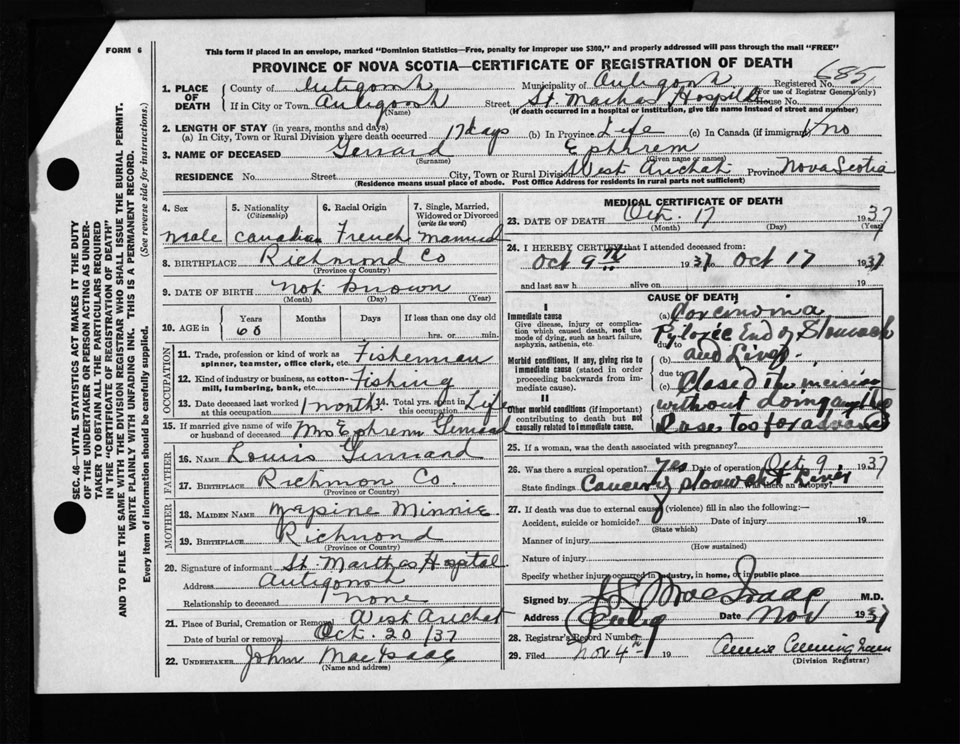 FORM 6
This form if placed in an envelope, marked "Dominion Statistics—Free, penalty for improper use $300," and properly addressed will pass through the mail "FREE"
PROVINCE OF NOVA SCOTIA—CERTIFICATE OF REGISTRATION OF DEATH
SEC. 46—VITAL STATISTICS ACT MAKES IT THE DUTY
OF THE UNDERTAKER OR PERSON ACTING AS UNDER-
TAKER TO OBTAIN ALL THE PARTICULARS REQUIRED
IN THE "CERTIFICATE OF REGISTRATION OF DEATH"
AND TO FILE THE SAME WITH THE DIVISION REGISTRAR WHO SHALL ISSUE THE BURIAL PERMIT.
WRITE PLAINLY WITH UNFADING INK. THIS IS A PERMANENT RECORD.
Every item of information should be carefully supplied. (See reverse side for instructions.)
1. PLACE OF DEATH County of Antigonish Municipality of Antigonish Registered No. 685
(For use of Registrar General only)
If in City or Town Antigonish Street St. Marthas Hospital House No.
(Name) (If death occurred in a hospital or institution, give the name instead of street and number)
2. LENGTH OF STAY (in years, months and days)
(a) In City, Town or Rural Division where death occurred 17 days (b) In Province Life (c) In Canada (if immigrant) no
3. NAME OF DECEASED Gerrard Ephrem
(Surname) (Given name or names)
RESIDENCE No. Street City, Town or Rural Division West Arichat Province Nova Scotia
(Residence means usual place of abode. Post Office Address for residents in rural parts not sufficient)
4. Sex 5. Nationality (Citizenship) 6. Racial Origin 7. Single, Married, Widowed or Divorced (write the word)
male Canadian French Married
8. BIRTHPLACE Richmond Co
(Province or Country)
9. DATE OF BIRTH not known
(Month) (Day) (Year)
10. AGE in Years Months Days If less than one day old
60 hrs. or min.
OCCUPATION
11. Trade, profession or kind of work as spinner, teamster, office clerk, etc. Fisherman
12. Kind of industry or business, as cotton-mill, lumbering, bank, etc. Fishing
13. Date deceased last worked at this occupation 1 month 14. Total yrs. spent in this occupation Life
15. If married give name of wife or husband of deceased Mrs Ephrem
FATHER
16. NAME Louis
17. BIRTHPLACE Richmon Co.
(Province or Country)
MOTHER
18. MAIDEN NAME Minnie
19. BIRTHPLACE Richmond
(Province or Country)
20. Signature of informant St. Marthas Hospital
Address Antigonish
Relationship to deceased none
21. Place of Burial, Cremation or Removal West Arichat
Date of burial or removal Oct. 20/37
22. UNDERTAKER John MacIsaac
(Name and address)
MEDICAL CERTIFICATE OF DEATH
23. DATE OF DEATH Oct. 17 1937
(Month) (Day) (Year)
24. I HEREBY CERTIFY that I attended deceased from:
Oct 9th 1937 to Oct 17 1937
and last saw h alive on 19
CAUSE OF DEATH
I
Immediate cause
Give disease, injury or complication which caused death, not the mode of dying, such as heart failure, asphyxia, asthenia, etc.
(a) Carcinoma
Pyloric End of Stomach
due to
(b) and Liver.
Morbid conditions, if any, giving rise to immediate cause (stated in order proceeding backwards from immediate cause).
due to
(c) Closed the incision
II
without doing anything
Other morbid conditions (if important) contributing to death but not causally related to immediate cause.
Case too far advanced
25. If a woman, was the death associated with pregnancy?
26. Was there a surgical operation? Yes Date of operation Oct 9 1937
State findings Cancer of stomach & Liver Was there an autopsy?
27. If death was due to external causes (violence) fill in also the following:—
Accident, suicide or homicide? Date of injury 19
(State which)
Manner of injury
(How sustained)
Nature of injury
Specify whether injury occurred in industry, in home, or in public place
Signed by MacIsaac M.D.
Address Date Nov 1937
28. Registrar's Record Number
29. Filed Nov 4th 19 Annie Cunningham
(Division Registrar)